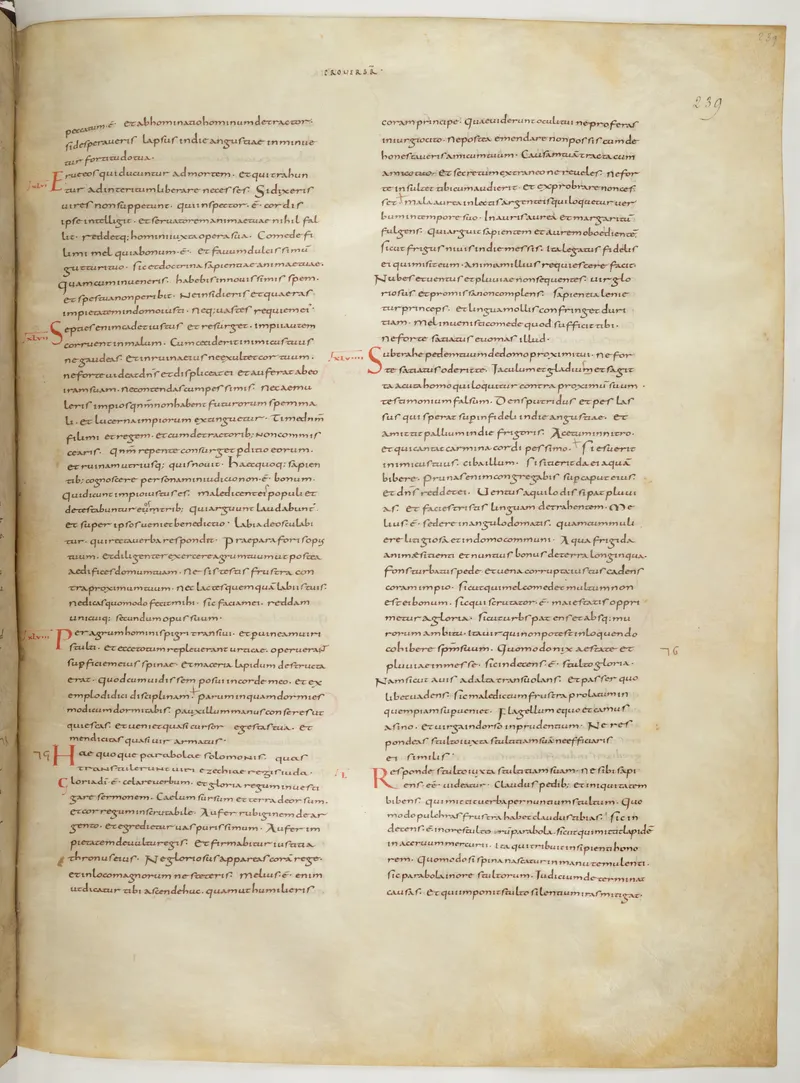 PROVERB̄
239
peccatum ē. et abhominatio hominum detractor.
si desperaveris lapsus in die angustiae inminue
tur fortitudo tua.
Erue eos qui ducuntur ad mortem. et qui trahun
tur ad interitum liberare ne cesses. Si dixeris
vires non suppetunt. qui inspector. ē. cordis
ipse intellegit. et servatorem animae tuae nihil fal
lit. reddetq; homini iuxta opera sua. Comede fi
li mi mel quia bonum. ē. et favum dulcissimū
gutturi tuo. sic et doctrina sapientiae animae tuae.
quam cum inveneris. habebis in novissimis spem.
et spes tua non peribit. Ne insidieris et quaeras
impietatem in domo iusti. neq; vastes requiem ei'.
Septies enim cadet iustus et resurget. impii autem
corruent in malum. Cum ceciderit inimicus tuus
ne gaudeas. et in ruina eius ne exultet cor tuum.
ne forte videat dn̄s et displiceat ei et auferat ab eo
iram suam. ne contendas cum pessimis. nec aemu
leris impios qnm̄ non habent futurorum spem ma
li. et lucerna impiorum extinguetur. Time dnm̄
fili mi et regem. et cum detractorib; non commis
cearis. qnm̄ repente consurget pditio eorum.
et ruinam utriusq; quis novit. Haec quoq; sapien
tib; cognoscere personam in iudicio non ē. bonum.
qui dicunt impio iustus es. maledicent ei populi et
detestabuntur eos tribus. qui arguunt laudabunt̄
et super ipsos veniet benedictio. Labia deosculabi
tur. qui recta verba respondit. Praepara foris op;
tuum. et diligenter exerce agrum tuum ut postea
aedifices domum tuam. ne sis testis frustra con
tra proximum tuum. nec lactes quemquā labiis tuis.
ne dicas quomodo fecit mihi. sic faciam ei. reddam
unicuiq; secundum opus suum.
Per agrum hominis pigri transivi. et per vineam viri
stulti. et ecce totum repleverant urticae. operuerant
supficiem eius spinae. et maceria lapidum destructa
erat. quod cum vidissem posui in corde meo. et ex
emplo didici disciplinam. parum inquam dormies
modicum dormitabis. pauxillum manus conseres ut
quiescas. et veniet quasi cursor egestas tua. et
mendicitas quasi vir armatus.
Hae quoque parabolae solomonis. quas
transtulerunt viri ezechiae regis iuda.
Gloria di ē. celare verbum. et gloria regum investi
gare sermonem. Caelum sursum et terra deorsum.
et cor regum inscrutabile. Aufer rubiginem de ar
gento. et egredietur vas purissimum. Aufer im
pietatem de vultu regis. et firmabitur iustitia
thronus eius. Ne gloriosus appareas corā rege.
et in loco magnorum ne steteris. melius. ē. enim
ut dicatur tibi ascende huc. quam ut humilieris
coram principe. Quae viderunt oculi tui ne proferas
in iurgio cito. ne postea emendare non possis cum de
honestaveris amicum tuum. Causam tuā tracta cum
amico tuo. et secretum extraneo ne reveles. ne for
te insultet tibi cum audierit. et exprobrare non ces
set. mala aurea in lectis argenteis qui loquetur ver
bum in tempore suo. Inauris aurea et margaritū
fulgens. qui arguit sapientem et aurem oboedientē.
sicut frigus nivis in die messis. ita legatus fidelis
ei qui misit eum. animam illius requiescere facit.
Nubes et ventus et pluviae non sequentes. vir glo
riosus et promissa non complens. sapientia lenie
tur princeps. et lingua mollis confringet duri
tiam. mel invenisti comede quod sufficit tibi.
ne forte satiatus evomas illud.
Subtrahe pedem tuum de domo proximi tui. ne for
te satiatus oderit te. Iaculum et gladium et sagit
ta acuta homo qui loquitur contra proximū suum
testimonium falsum. Dens putridus et pes las
sus qui sperat sup infideli in die angustiae. et
amittat pallium in die frigoris. Acetum in nitro.
et qui cantat carmina cordi pessimo. Si esurie
inimicus tuus. ciba illum. si sitierit da ei aquā
bibere. prunas enim congregabis sup caput eius
et dns̄ reddet ei. Ventus aquilo dissipat pluvi
as. et facies tristis linguam detrahentem. Me
lius ē. sedere in angulo domatis. quam cum muli
ere litigiosa et in domo communi. Aqua frigida
animae sitienti et nuntius bonus de terra longinqua.
fons turbatus pede et vena corrupta iustus cadens
coram impio. sicut qui mel comedet multum non
est ei bonum. sic qui scrutator. ē. maiestatis oppri
metur a gloria. sicut urbs patens et absq; mu
rorum ambitu. ita vir qui non potest in loquendo
cohibere spm̄ suum. Quomodo nix aestate et
pluvia in messe. sic indecens. ē. stulto gloria.
Nam sicut avis ad alta transvolans. et passer quo
libet vadens. sic maledictum frustra prolatum in
quempiam supveniet. Flagellum equo et camus
asino. et virga in dorso inprudentium. Ne res
pondeas stulto iuxta stultitiam suā ne efficiaris
ei similis
Responde stulto iuxta stultitiam suam. ne sibi sapi
ens ēē videatur. Claudus pedib; et iniquitatem
bibens. qui mittit verba per nuntium stultum. Quo
modo pulchras frustra habet claudus tibias. sic in
decens. ē. in ore stultorū parabola. sicut qui mittit lapidē
in acervum mercurii. ita qui tribuit insipienti hono
rem. Quomodo si spina nascatur in manu temulenti.
sic parabola in ore stultorum. Iudicium determinat
causas. et qui imponit stulto silentium iras mitigat.